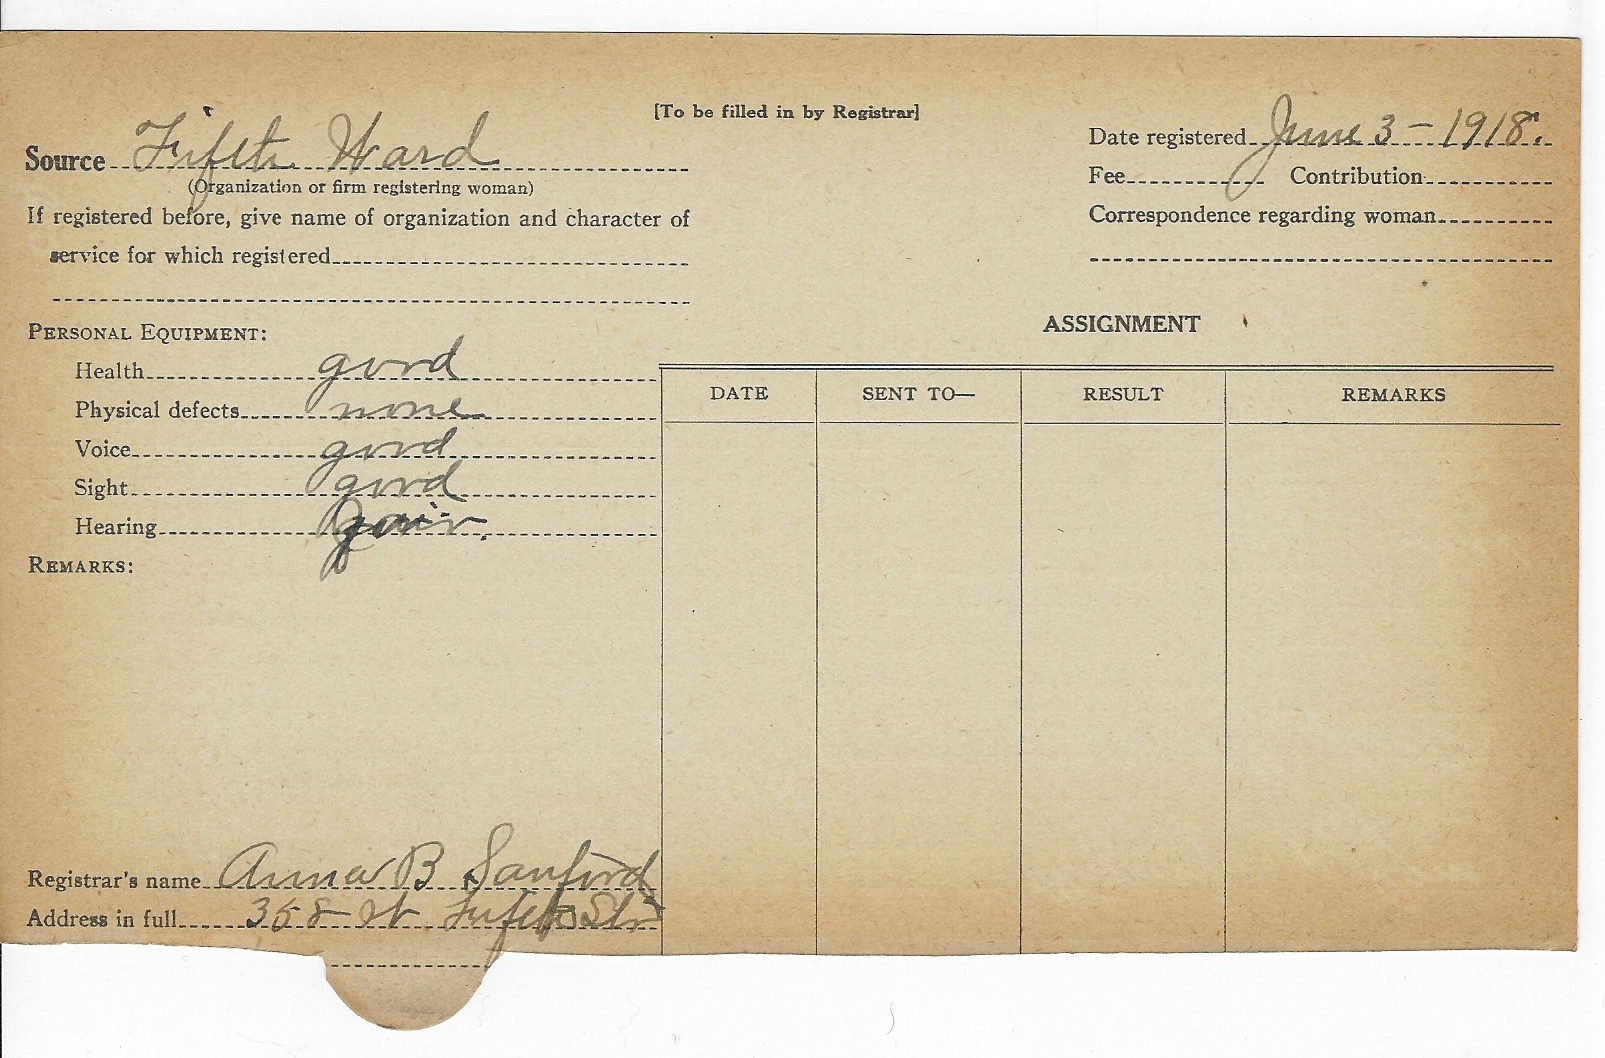 [To be filled in by Registrar]
Source Fifth Ward
(Organization or firm registering woman)
If registered before, give name of organization and character of
service for which registered
Date registered June 3 - 1918.
Fee Contribution
Correspondence regarding woman
PERSONAL EQUIPMENT:
Health good
Physical defects none
Voice good
Sight good
Hearing fair.
REMARKS:
ASSIGNMENT
DATE SENT TO— RESULT REMARKS
Registrar's name Anna B Sanford
Address in full 358 W Fifth Str